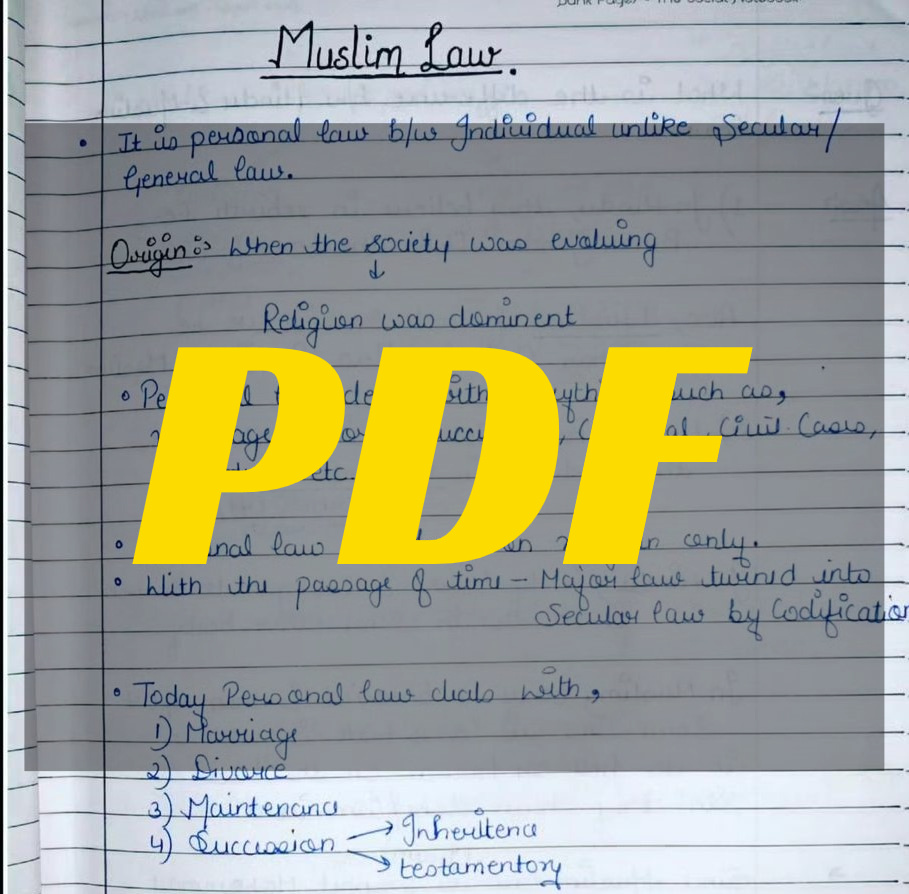 Muslim Law.
• It is personal law b/w Individual unlike Secular/
General law.
Origin :- When the society was evaluing
↓
Religion was dominent
such as,
Civil Cases,
etc.
PDF
law only.
• With the passage of time - Major law turned into
Secular law by Codification
• Today Personal law deals with,
1) Marriage
2) Divorce
3) Maintenance
4) Succession → Inheritence
→ testamentory